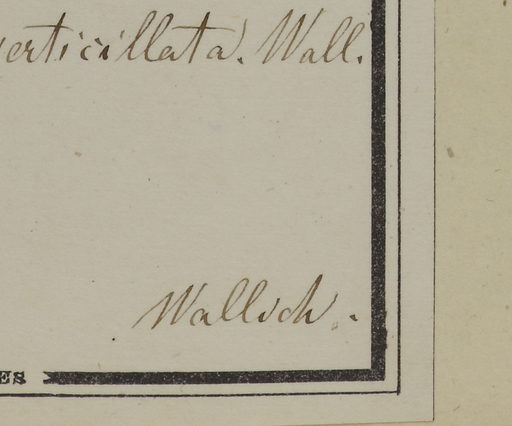 verticillata. Wall.
Wallich.
ES